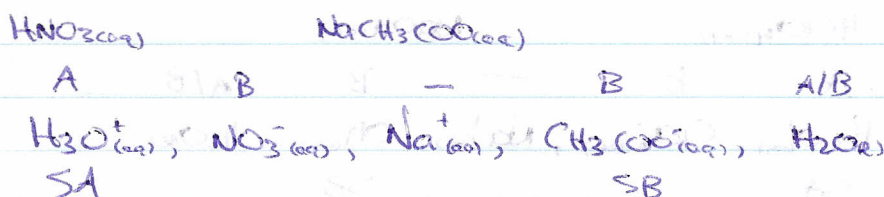 HNO3(aq) NaCH3COO(aq)
A B — B A/B
H3O+(aq), NO3-(aq), Na+(aq), CH3COO-(aq), H2O(l)
SA SB